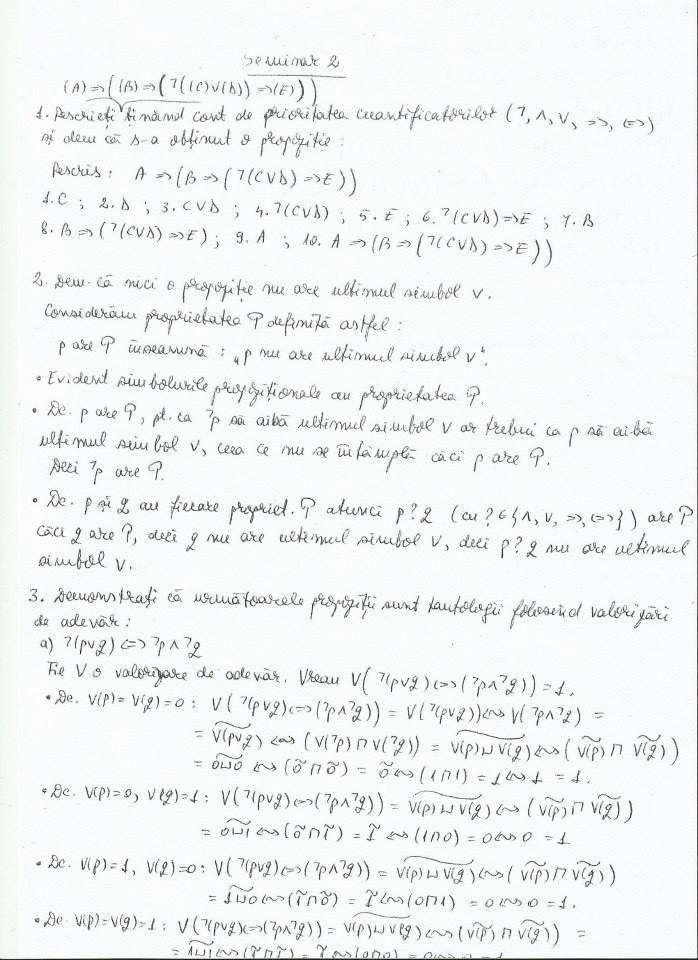 Seminar 2
(A)=>((B)=>(ꓶ((C)∨(D))=>(E)))
1. Descrieți ținând cont de prioritatea cuantificatorilor (ꓶ, ∧, ∨, =>, <=>)
și dem că s-a obținut o propoziție :
Rescris : A => (B => (ꓶ(C∨D) => E))
1. C ; 2. D ; 3. C∨D ; 4. ꓶ(C∨D) ; 5. E ; 6. ꓶ(C∨D)=>E ; 7. B
8. B => (ꓶ(C∨D)=>E) ; 9. A ; 10. A => (B => (ꓶ(C∨D)=>E))
2. Dem. că nici o propoziție nu are ultimul simbol ∨.
Considerăm proprietatea P definită astfel :
p are P înseamnă : „p nu are ultimul simbol ∨“.
• Evident simbolurile propoziționale au proprietatea P.
• Dc. p are P, pt. ca ꓶp să aibă ultimul simbol ∨ ar trebui ca p să aibă
ultimul simbol ∨, ceea ce nu se întâmplă căci p are P.
Deci ꓶp are P.
• Dc. p și q au fiecare propriet. P atunci p?q (cu ? ∈ {∧, ∨, =>, <=>}) are P
căci q are P, deci q nu are ultimul simbol ∨, deci p?q nu are ultimul
simbol ∨.
3. Demonstrați că următoarele propoziții sunt tautologii folosind valorizări
de adevăr :
a) ꓶ(p∨q) <=> ꓶp∧ꓶq
Fie V o valorizare de adevăr. Vreau V(ꓶ(p∨q)<=>(ꓶp∧ꓶq)) = 1.
• Dc. V(p)=V(q)=0 : V(ꓶ(p∨q)<=>(ꓶp∧ꓶq)) = V(ꓶ(p∨q))⇔V(ꓶp∧ꓶq) =
= ~V(p∨q) ⇔ (V(ꓶp) ⊓ V(ꓶq)) = ~(V(p)⊔V(q)) ⇔ (~V(p) ⊓ ~V(q))
= ~(0⊔0) ⇔ (~0 ⊓ ~0) = ~0 ⇔ (1⊓1) = 1 ⇔ 1 = 1.
• Dc. V(p)=0, V(q)=1 : V(ꓶ(p∨q)<=>(ꓶp∧ꓶq)) = ~(V(p)⊔V(q)) ⇔ (~V(p) ⊓ ~V(q))
= ~(0⊔1) ⇔ (~0 ⊓ ~1) = ~1 ⇔ (1⊓0) = 0 ⇔ 0 = 1
• Dc. V(p)=1, V(q)=0 : V(ꓶ(p∨q)<=>(ꓶp∧ꓶq)) = ~(V(p)⊔V(q)) ⇔ (~V(p) ⊓ ~V(q))
= ~(1⊔0) ⇔ (~1 ⊓ ~0) = ~1 ⇔ (0⊓1) = 0 ⇔ 0 = 1.
• Dc. V(p)=V(q)=1 : V(ꓶ(p∨q)<=>(ꓶp∧ꓶq)) = ~(V(p)⊔V(q)) ⇔ (~V(p) ⊓ ~V(q)) =
= ~(1⊔1) ⇔ (~1 ⊓ ~1) = ~1 ⇔ (0⊓0) = 0 ⇔ 0 = 1